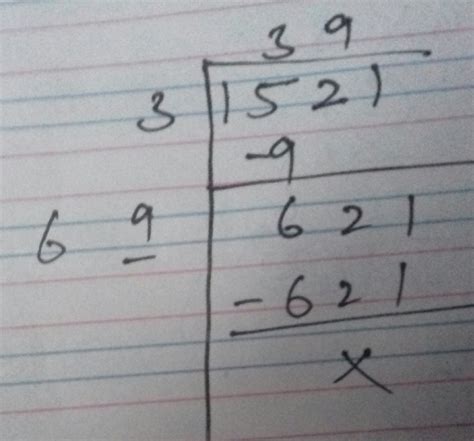 39
3 1521
-9
69 621
-621
x